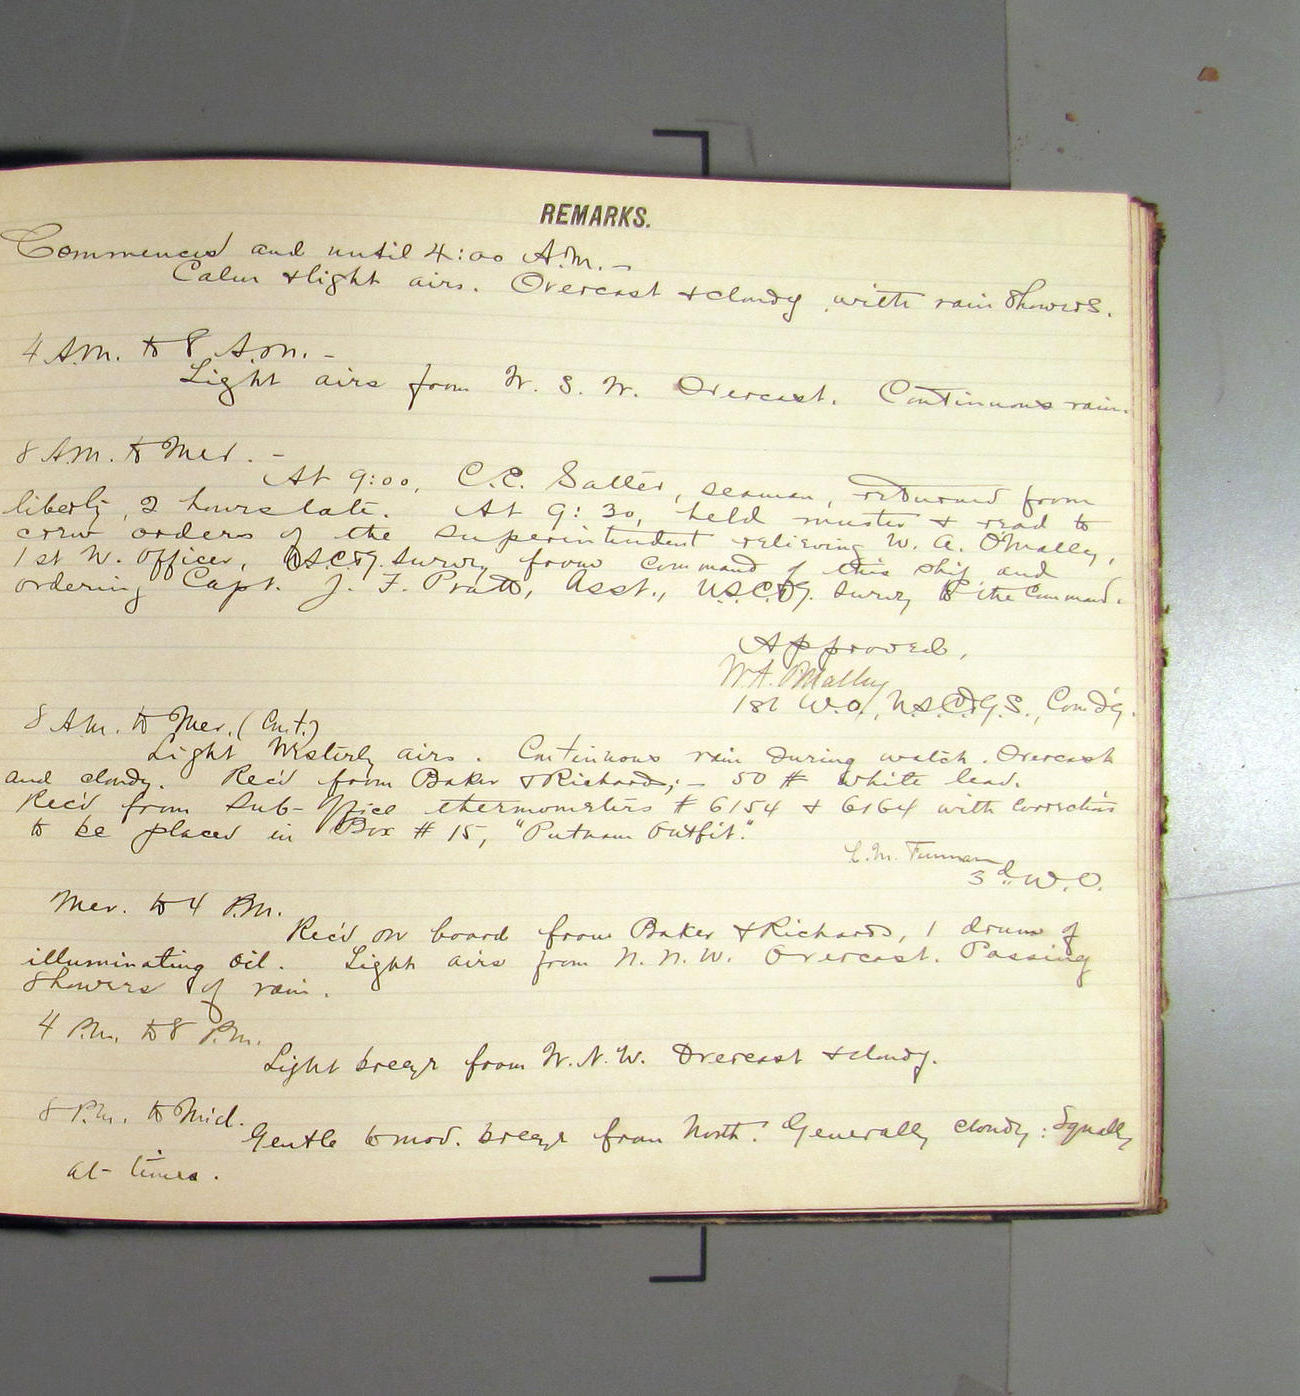 REMARKS.
Commences and until 4:00 A.M. —
Calm & light airs. Overcast & cloudy with rain showers.
4 A.M. to 8 A.M. —
Light airs from W. S. W. Overcast. Continuous rain.
8 A.M. to Mer. —
At 9:00, C.C. Salter, seaman, returned from
liberty, 2 hours late. At 9:30, held muster & read to
crew orders of the Superintendent relieving W. A. O'Malley,
1st W. Officer, U.S.C.&G. Survey from command of this ship and
ordering Capt. J. F. Pratt, Asst., U.S.C.&G. Survey to the Command.
Approved,
W.A. O'Malley
1st W.O., U.S.C.&G.S., Com'd'g.
8 A.M. to Mer. (Cont.)
Light Westerly airs. Continuous rain during watch. Overcast
and cloudy. Rec'd from Baker & Richards; — 50 # white lead.
Rec'd from Sub-Office thermometers # 6154 & 6164 with corrections
to be placed in Box # 15, "Putnam Outfit."
3d W.O.
Mer. to 4 P.M.
Rec'd on board from Baker & Richards, 1 drum of
illuminating oil. Light airs from N. N. W. Overcast. Passing
showers of rain.
4 P.M. to 8 P.M.
Light breeze from W. N. W. Overcast & cloudy.
8 P.M. to Mid.
Gentle to mod. breeze from North. Generally cloudy: Squally
at times.